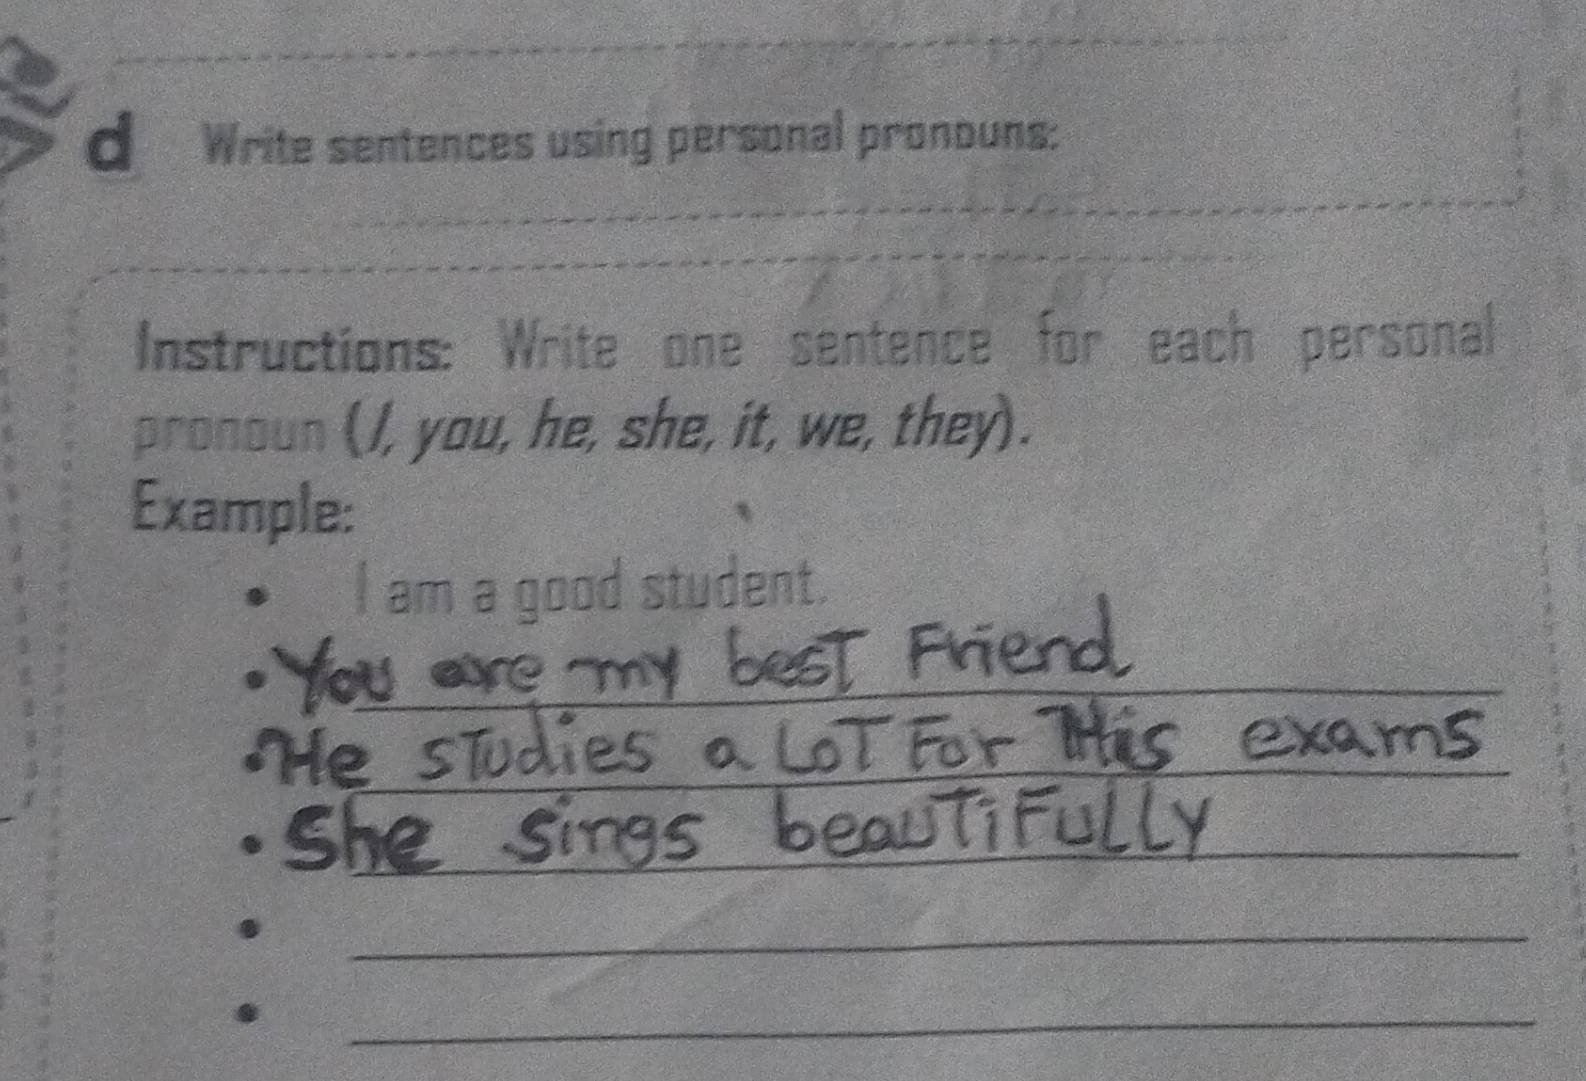 d Write sentences using personal pronouns:
Instructions: Write one sentence for each personal
pronoun (I, you, he, she, it, we, they).
Example:
• I am a good student.
• You are my besT Friend
• He sTudies a LoT For His exams
• She sings beauTiFuLLy
•
•